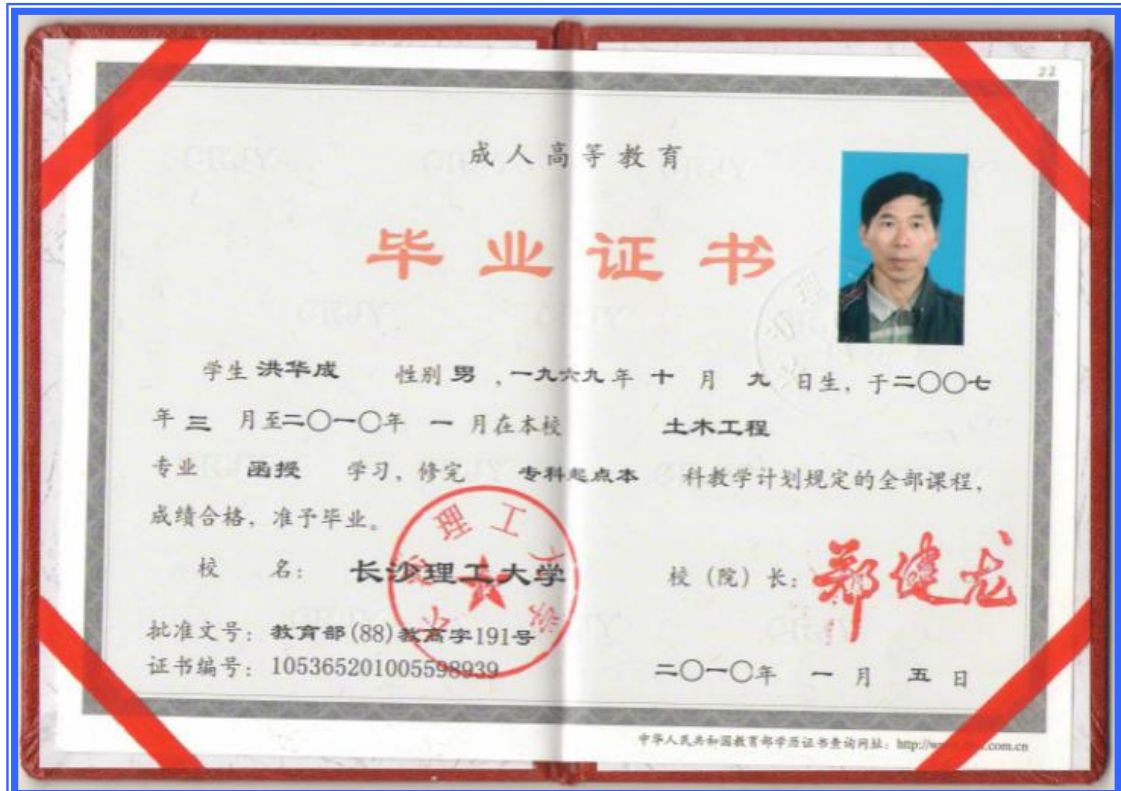 22
成人高等教育
毕业证书
学生 洪华成 性别 男 ，一九六九 年 十 月 九 日生，于二〇〇七
年 三 月至二〇一〇年 一 月在本校 土木工程
专业 函授 学习，修完 专科起点本 科教学计划规定的全部课程，
成绩合格，准予毕业。
校 名： 长沙理工大学 校（院）长：郑健龙
批准文号：教育部(88)教高字191号
证书编号：105365201005598939 二〇一〇年 一 月 五 日
中华人民共和国教育部学历证书查询网址：http://www. .com.cn